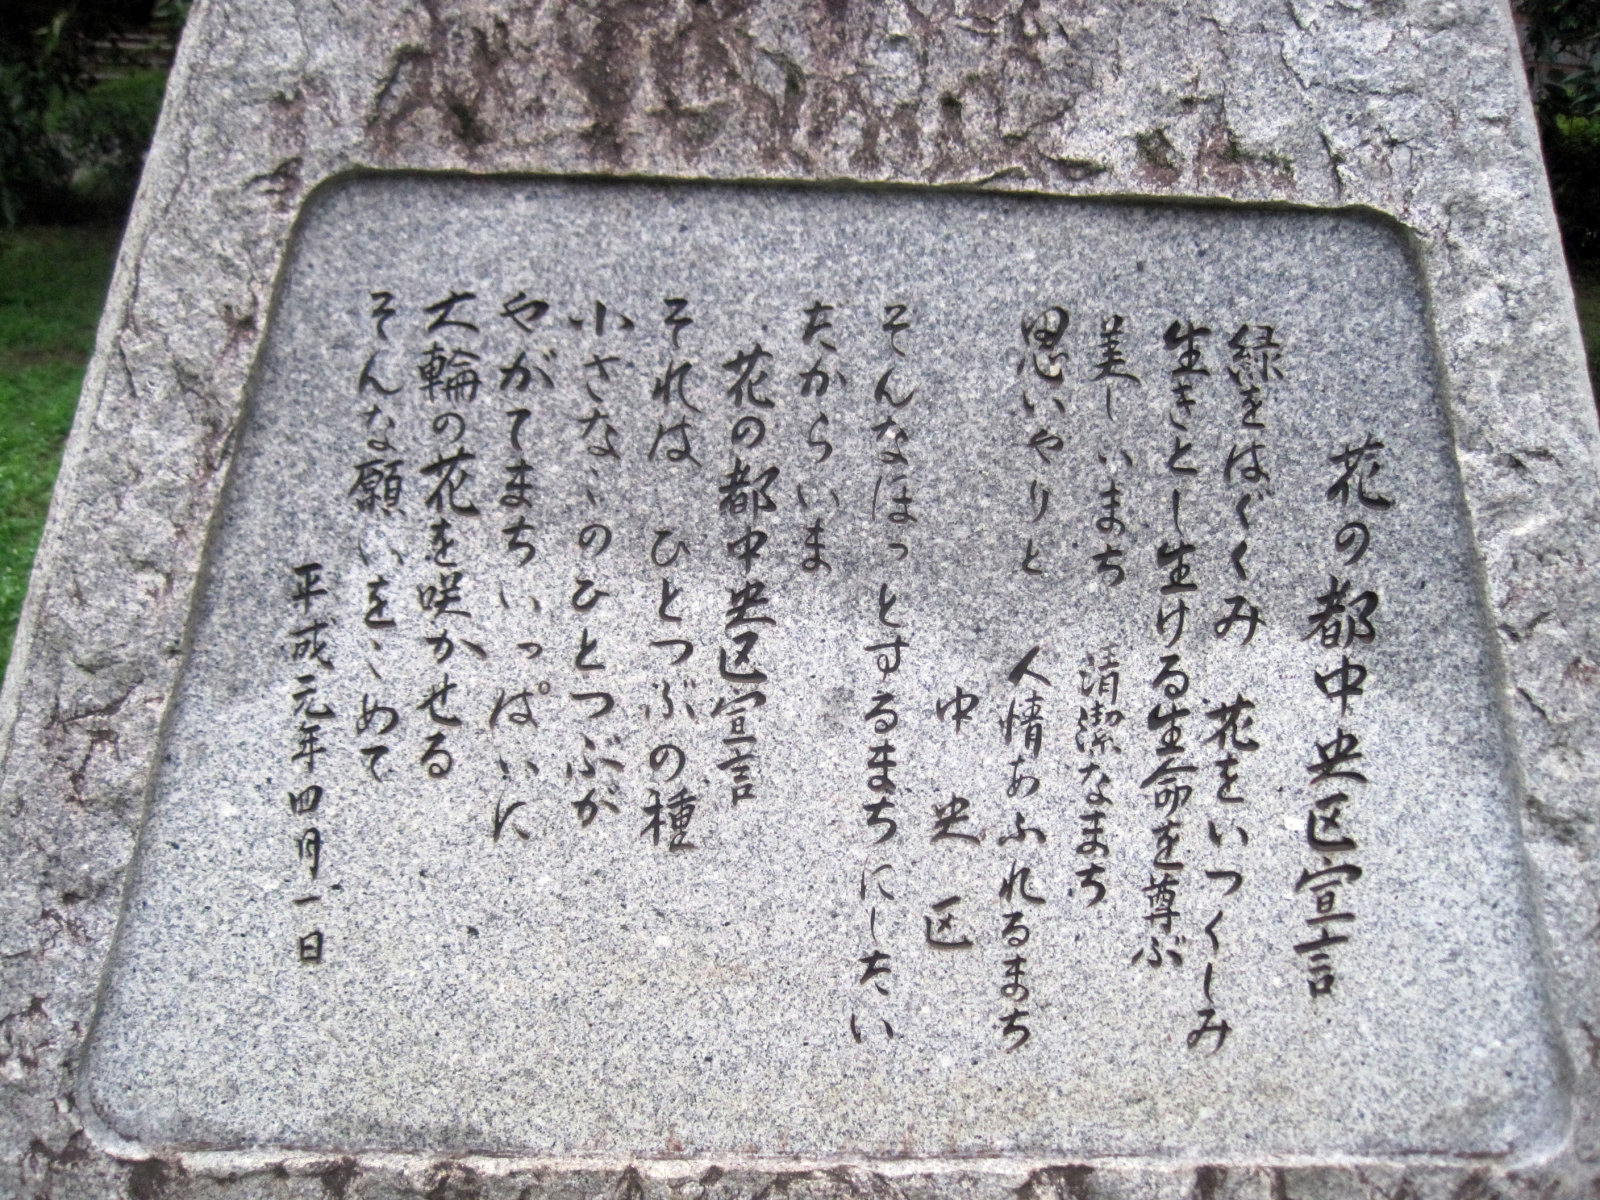 花の都中央区宣言
緑をはぐくみ　花をいつくしみ
生きとし生ける生命を尊ぶ
美しいまち　清潔なまち
思いやりと　人情あふれるまち
中央区
そんなほっとするまちにしたい
だからいま
花の都中央区宣言
それは　ひとつぶの種
小さなゝのひとつぶが
やがてまちいっぱいに
大輪の花を咲かせる
そんな願いをこめて
平成元年四月一日